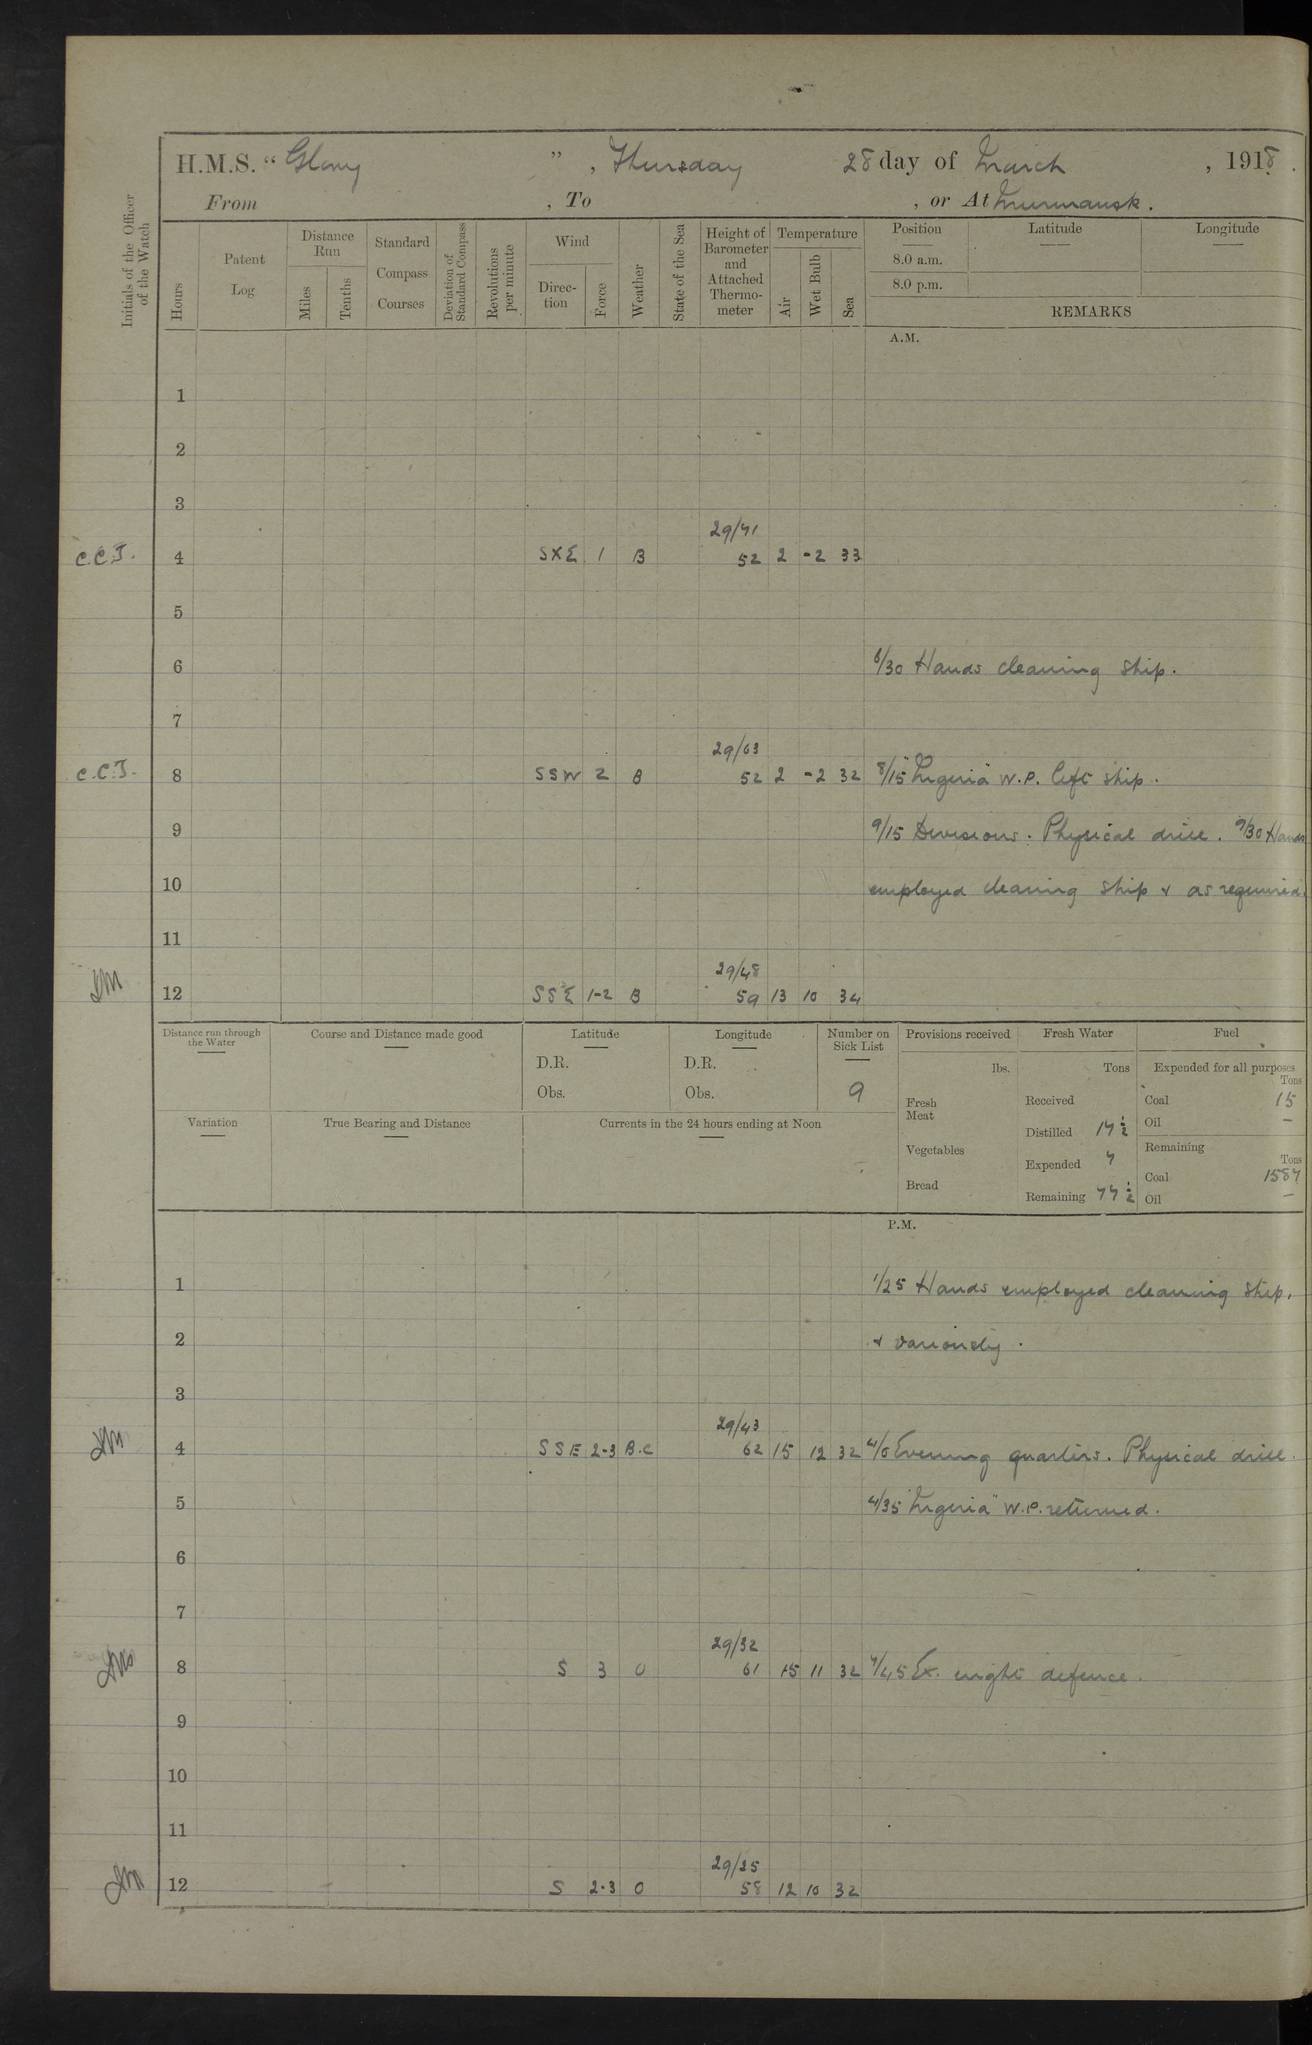 H.M.S. "Glory", Thursday 28 day of March, 1918.
From , To , or At Murmansk.
Initials of the Officer of the Watch
Hours
Patent Log
Distance Run
Miles
Tenths
Standard Compass Courses
Deviation of Standard Compass
Revolutions per minute
Wind
Direction
Force
Weather
State of the Sea
Height of Barometer and Attached Thermometer
Temperature
Air
Wet Bulb
Sea
Position
8.0 a.m.
8.0 p.m.
Latitude
Longitude
REMARKS
A.M.
1
2
3
29/71
C.C.J. 4 SXE 1 B 52 2 -2 33
5
6 6/30 Hands cleaning ship.
7
29/63
C.C.J. 8 SSW 2 B 52 2 -2 32 8/15 "Nigeria" W.P. left ship.
9 9/15 Divisions. Physical drill. 9/30 Hands
10 employed cleaning ship & as required.
11
29/48
12 SSE 1-2 B 59 13 10 34
Distance run through the Water
Course and Distance made good
Latitude
D.R.
Obs.
Longitude
D.R.
Obs.
Number on Sick List
9
Provisions received
lbs.
Fresh Meat
Vegetables
Bread
Fresh Water
Tons
Received
Distilled 17½
Expended 7
Remaining 77½
Fuel
Expended for all purposes
Tons
Coal 15
Oil –
Remaining
Tons
Coal 1587
Oil –
Variation
True Bearing and Distance
Currents in the 24 hours ending at Noon
P.M.
1 1/25 Hands employed cleaning ship.
2 & variously.
3
29/43
4 SSE 2-3 B.C 62 15 12 32 4/0 Evening quarters. Physical drill.
5 4/35 "Nigeria" W.P. returned.
6
7
29/32
8 S 3 O 61 15 11 32 7/45 Ex. night defence.
9
10
11
29/25
12 S 2-3 O 58 12 10 32